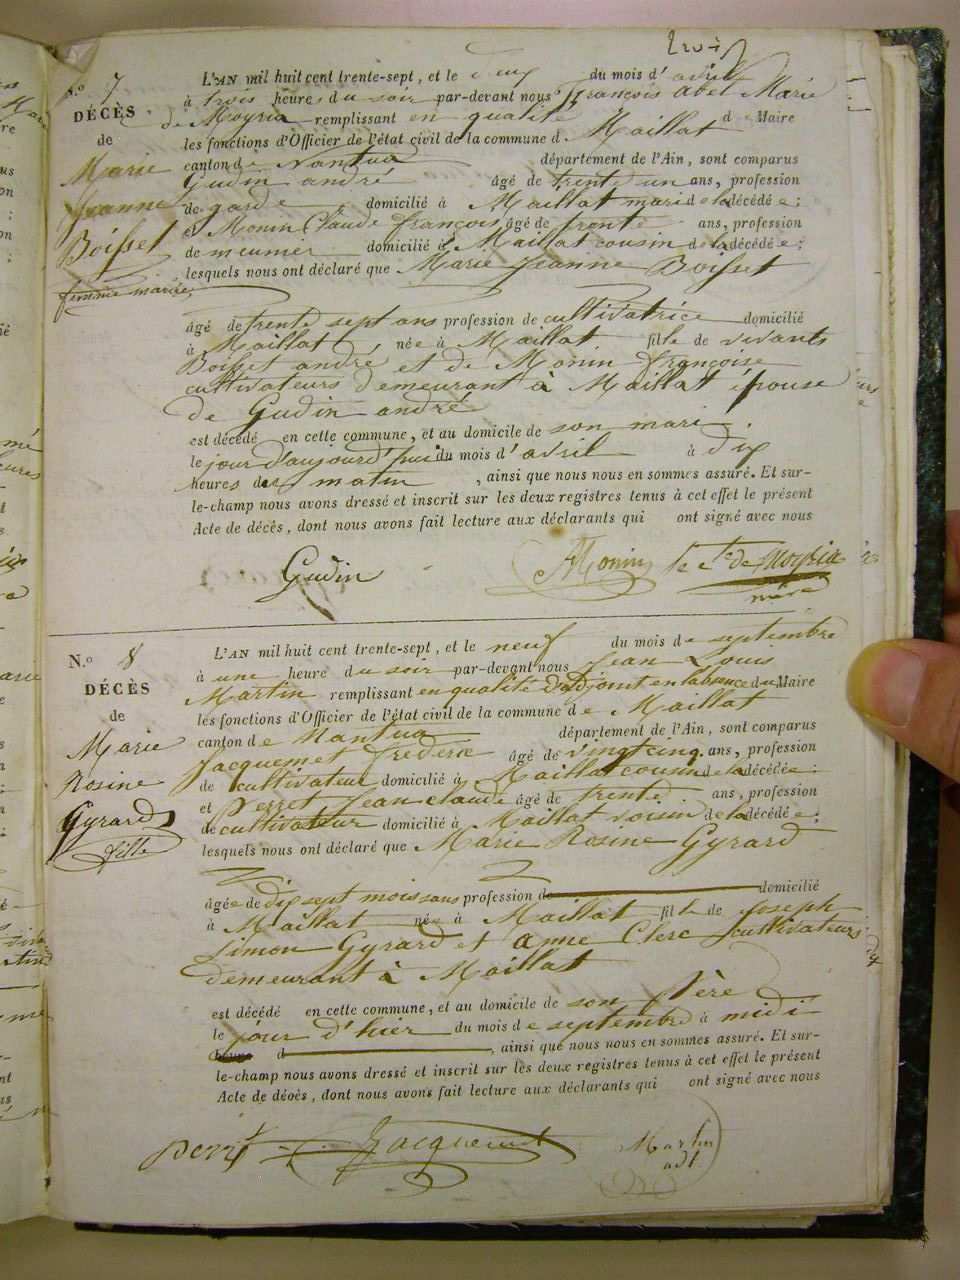 N.o 7
DÉCÈS
de
Marie
Jeanne
Boisset
femme mariée
L'AN mil huit cent trente-sept, et le deux du mois d'avril
à trois heures du soir par-devant nous François Abel Marie
de Moyria remplissant en qualité de Maire
les fonctions d'Officier de l'état civil de la commune de Maillat
canton de Nantua département de l'Ain, sont comparus
Gudin andré âgé de trente un ans, profession
de garde domicilié à Maillat mari de la décédée;
et Monin Claude françois âgé de trente ans, profession
de meunier domicilié à Maillat cousin de la décédée;
lesquels nous ont déclaré que Marie Jeanne Boisset
âgé de trente sept ans profession de cultivatrice domicilié
à Maillat née à Maillat fille de vivants
Boisset andré et de Monin françoise
cultivateurs demeurant à Maillat épouse
de Gudin andré
est décédé en cette commune, et au domicile de son mari
le jour d'aujourd'hui du mois d'avril à dix
heures du matin, ainsi que nous nous en sommes assuré. Et sur-
le-champ nous avons dressé et inscrit sur les deux registres tenus à cet effet le présent
Acte de décès, dont nous avons fait lecture aux déclarants qui ont signé avec nous
Gudin Monin le Cte de Moyria
maire
N.o 8
DÉCÈS
de
Marie
Rosine
Gyrard
fille
L'AN mil huit cent trente-sept, et le neuf du mois de septembre
à une heure du soir par-devant nous Jean Louis
Martin remplissant en qualité d'adjoint en l'absence du Maire
les fonctions d'Officier de l'état civil de la commune de Maillat
canton de Nantua département de l'Ain, sont comparus
Jacquemet frédéric âgé de vingt cinq ans, profession
de cultivateur domicilié à Maillat cousin de la décédée;
et Perret Jean claude âgé de trente ans, profession
de cultivateur domicilié à Maillat voisin de la décédée;
lesquels nous ont déclaré que Marie Rosine Gyrard
âgée de dix sept mois sans profession de domicilié
à Maillat née à Maillat fille de Joseph
Simon Gyrard et anne Clerc cultivateurs
demeurant à Maillat
est décédé en cette commune, et au domicile de son père
le jour d'hier du mois de septembre à midi
heure d, ainsi que nous nous en sommes assuré. Et sur-
le-champ nous avons dressé et inscrit sur les deux registres tenus à cet effet le présent
Acte de décès, dont nous avons fait lecture aux déclarants qui ont signé avec nous
perret Jacquemet Martin
adt.